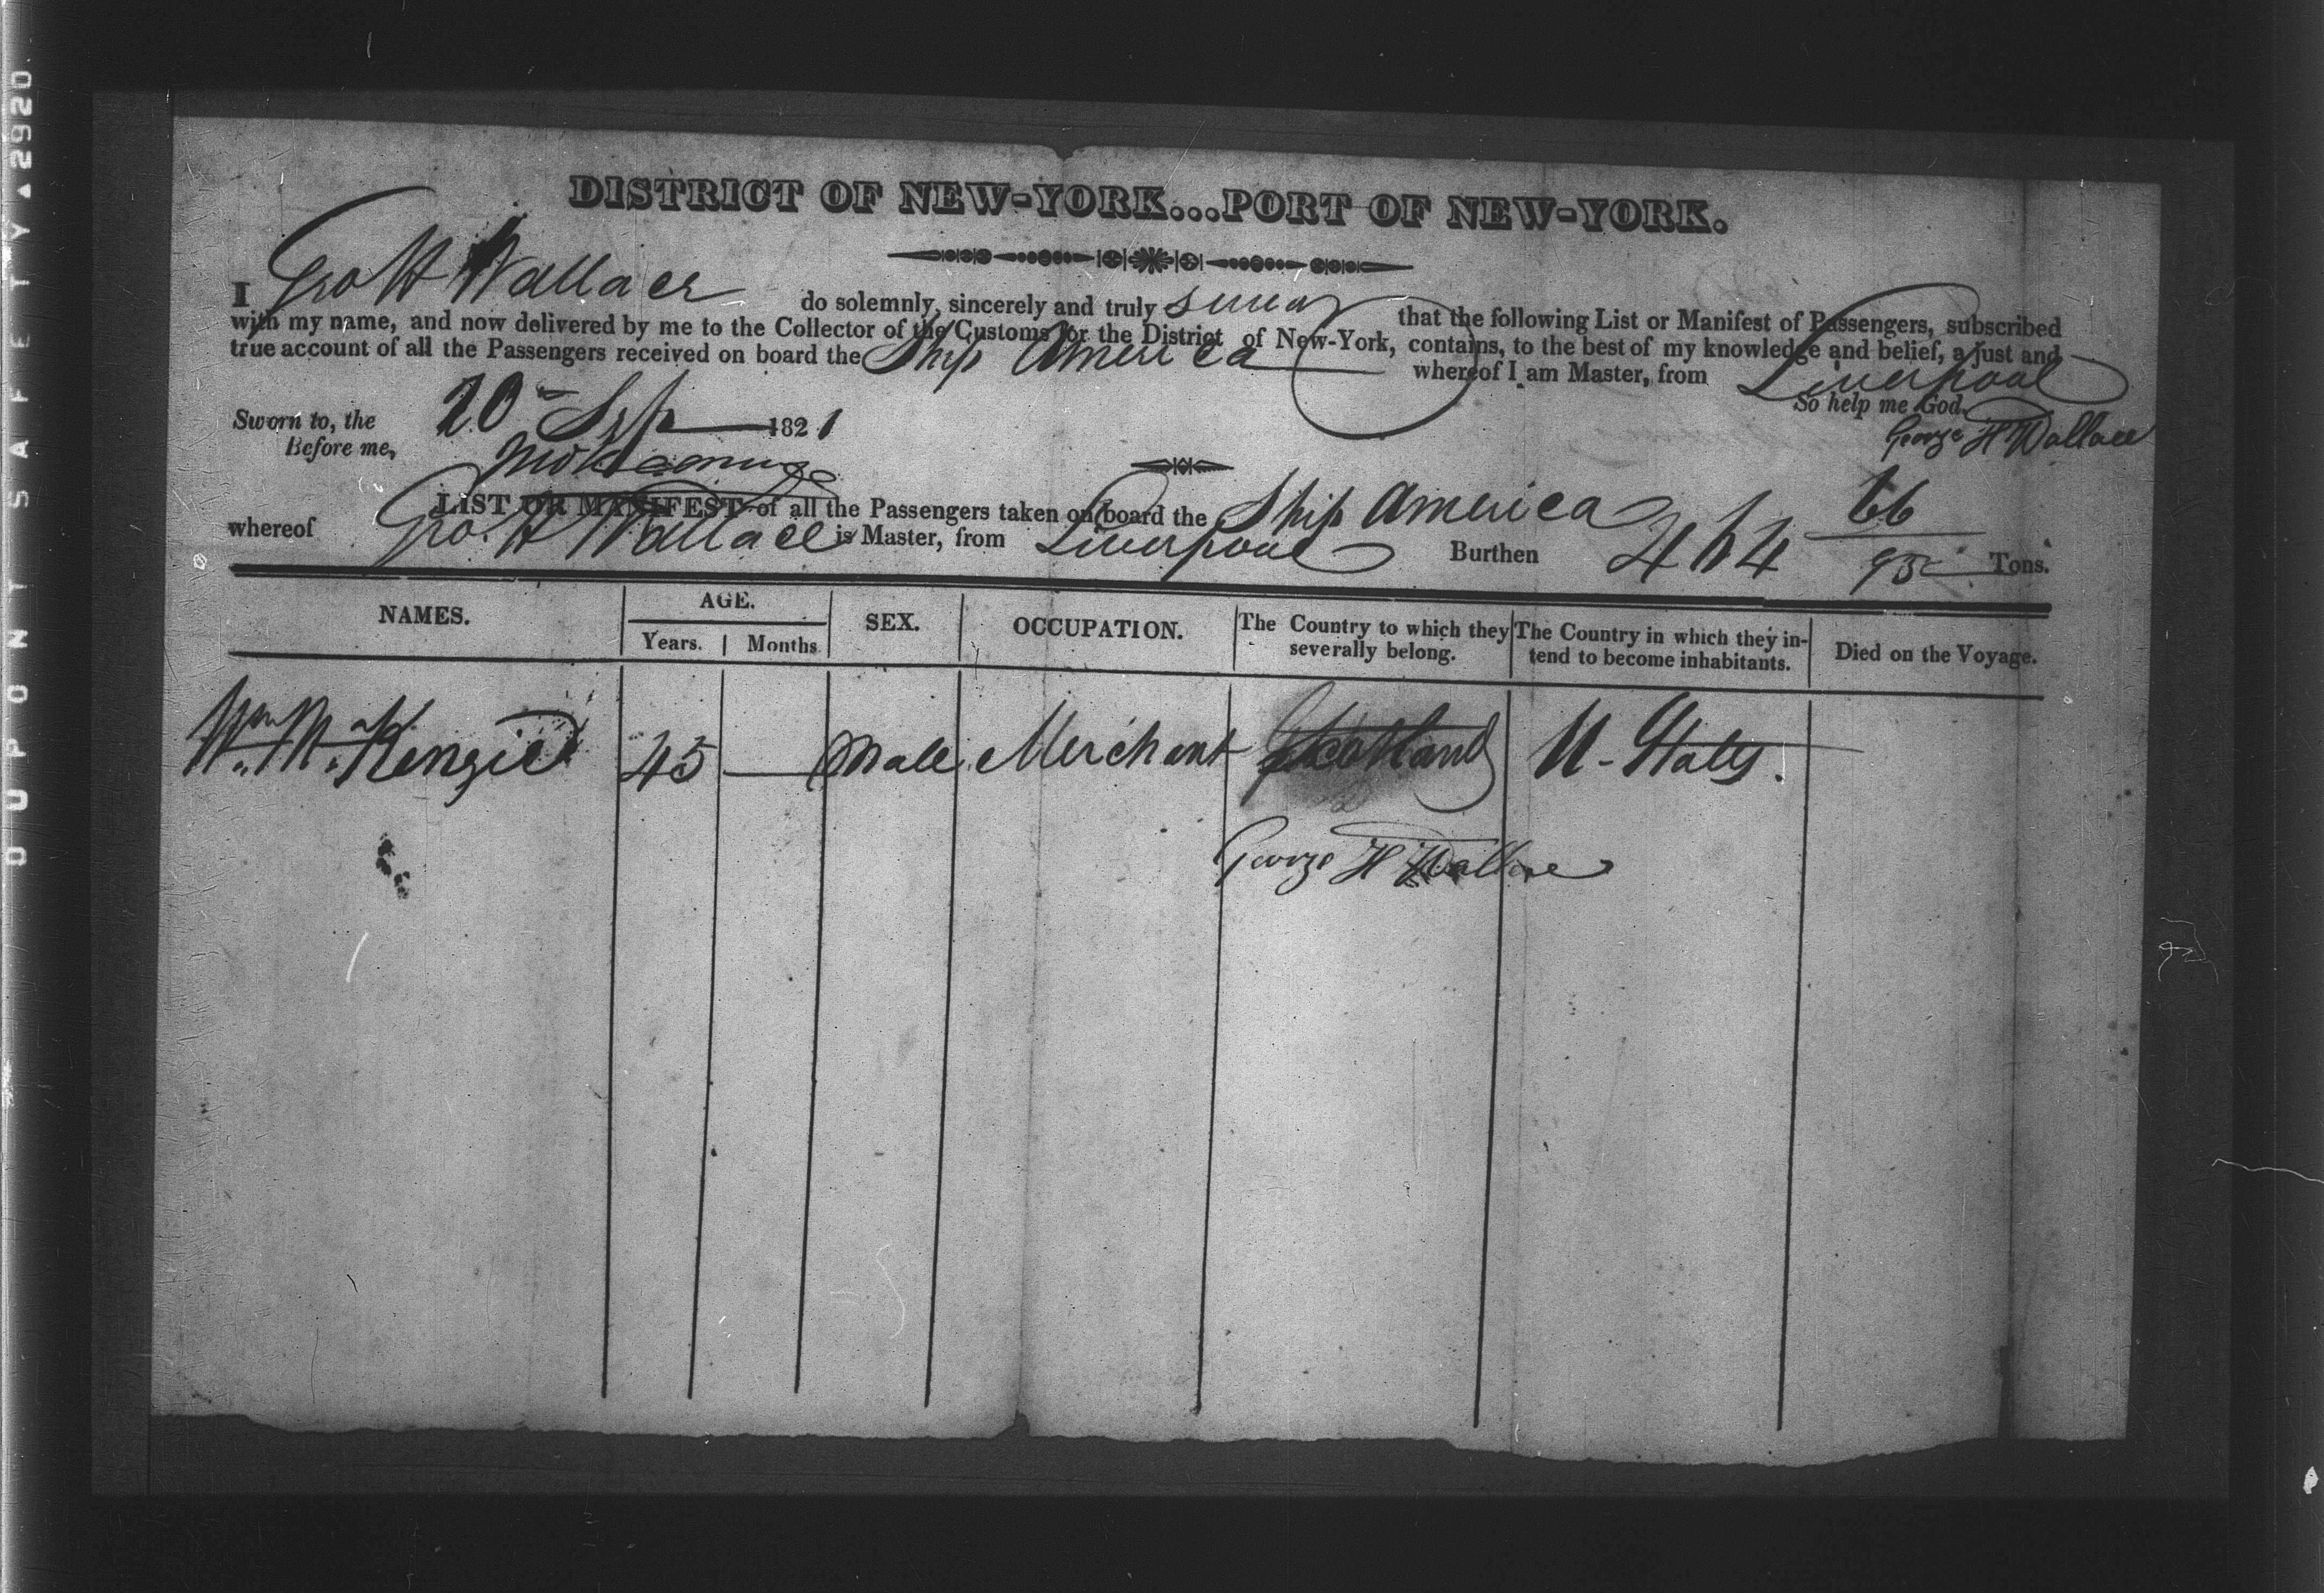 DUPONT SAFETY ▲ 2920
DISTRICT OF NEW-YORK...PORT OF NEW-YORK.
I Geo H Wallace do solemnly, sincerely and truly swear that the following List or Manifest of Passengers, subscribed
with my name, and now delivered by me to the Collector of the Customs for the District of New-York, contains, to the best of my knowledge and belief, a just and
true account of all the Passengers received on board the Ship America whereof I am Master, from Liverpool
So help me God.
Sworn to, the 20th Sep 1821
George H Wallace
Before me,
LIST OR MANIFEST of all the Passengers taken on board the Ship America
whereof Geo. H Wallace is Master, from Liverpool Burthen 464 66/95 Tons.
NAMES. AGE. SEX. OCCUPATION. The Country to which they severally belong. The Country in which they intend to become inhabitants. Died on the Voyage.
Years. Months.
Wm McKenzie 45 — Male Merchant Scotland U-States.
George H Wallace